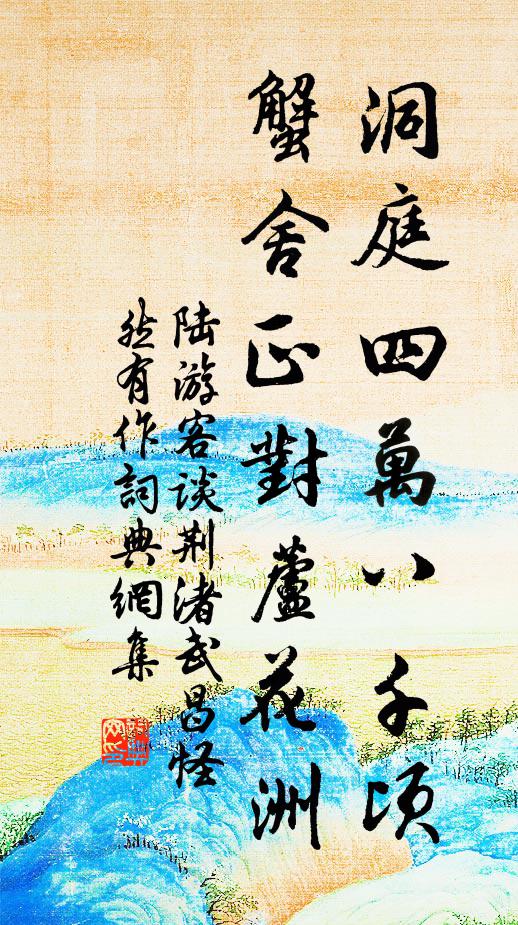 洞庭四萬八千頃
蟹舍正對蘆花洲
陆游客谈荆渚武昌怪
然有作詞典網集